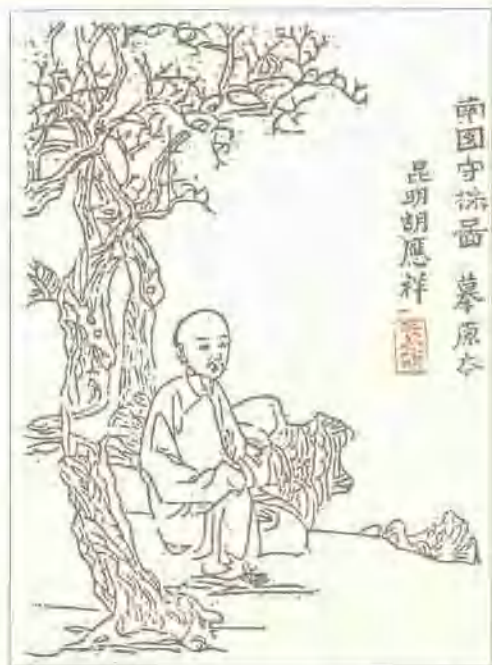 南園守株啚 摹原本
昆明胡應祥